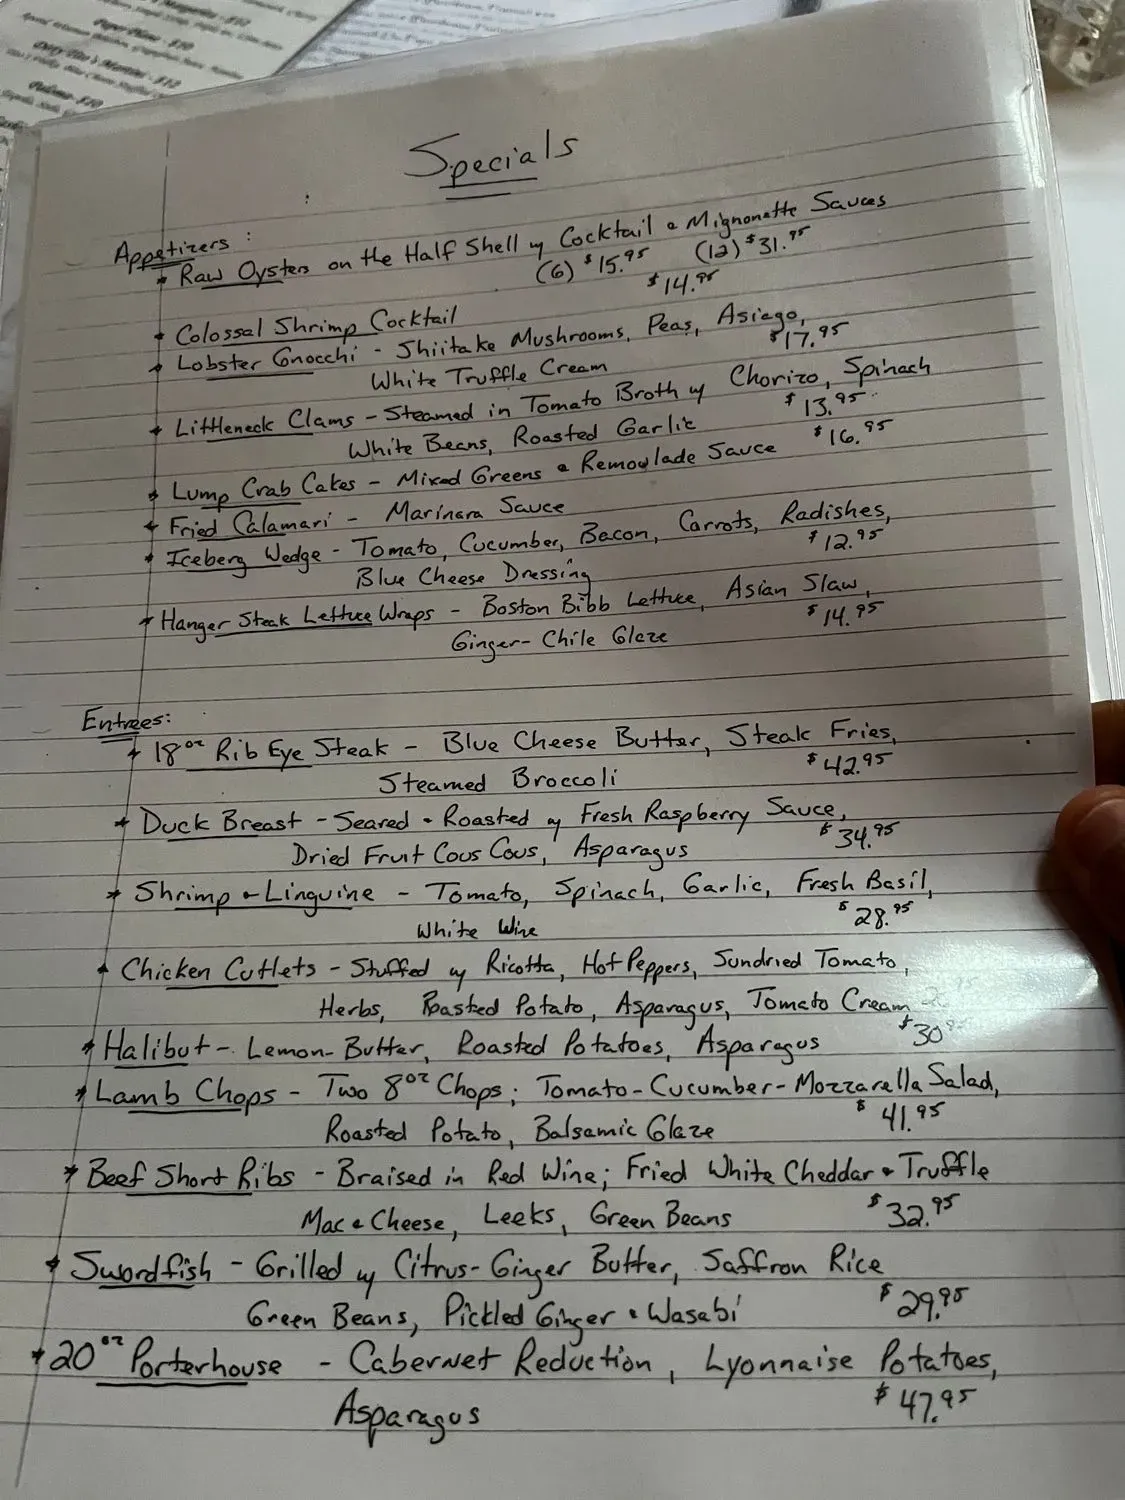 Specials
Appetizers :
* Raw Oysters on the Half Shell w/ Cocktail & Mignonette Sauces
(6) $15.95 (12) $31.95
* Colossal Shrimp Cocktail $14.95
* Lobster Gnocchi - Shiitake Mushrooms, Peas, Asiago,
White Truffle Cream $17.95
* Littleneck Clams - Steamed in Tomato Broth w/ Chorizo, Spinach
White Beans, Roasted Garlic $13.95
* Lump Crab Cakes - Mixed Greens & Remoulade Sauce $16.95
* Fried Calamari - Marinara Sauce
* Iceberg Wedge - Tomato, Cucumber, Bacon, Carrots, Radishes,
Blue Cheese Dressing $12.95
* Hanger Steak Lettuce Wraps - Boston Bibb Lettuce, Asian Slaw,
Ginger-Chile Glaze $14.95
Entrees:
* 18oz Rib Eye Steak - Blue Cheese Butter, Steak Fries,
Steamed Broccoli $42.95
* Duck Breast - Seared & Roasted w/ Fresh Raspberry Sauce,
Dried Fruit Cous Cous, Asparagus $34.95
* Shrimp & Linguine - Tomato, Spinach, Garlic, Fresh Basil,
White Wine $28.95
* Chicken Cutlets - Stuffed w/ Ricotta, Hot Peppers, Sundried Tomato,
Herbs, Roasted Potato, Asparagus, Tomato Cream
* Halibut - Lemon-Butter, Roasted Potatoes, Asparagus $30
* Lamb Chops - Two 8oz Chops; Tomato-Cucumber-Mozzarella Salad,
Roasted Potato, Balsamic Glaze $41.95
* Beef Short Ribs - Braised in Red Wine; Fried White Cheddar & Truffle
Mac & Cheese, Leeks, Green Beans $32.95
* Swordfish - Grilled w/ Citrus-Ginger Butter, Saffron Rice
Green Beans, Pickled Ginger & Wasabi $29.95
* 20oz Porterhouse - Cabernet Reduction, Lyonnaise Potatoes,
Asparagus $47.95